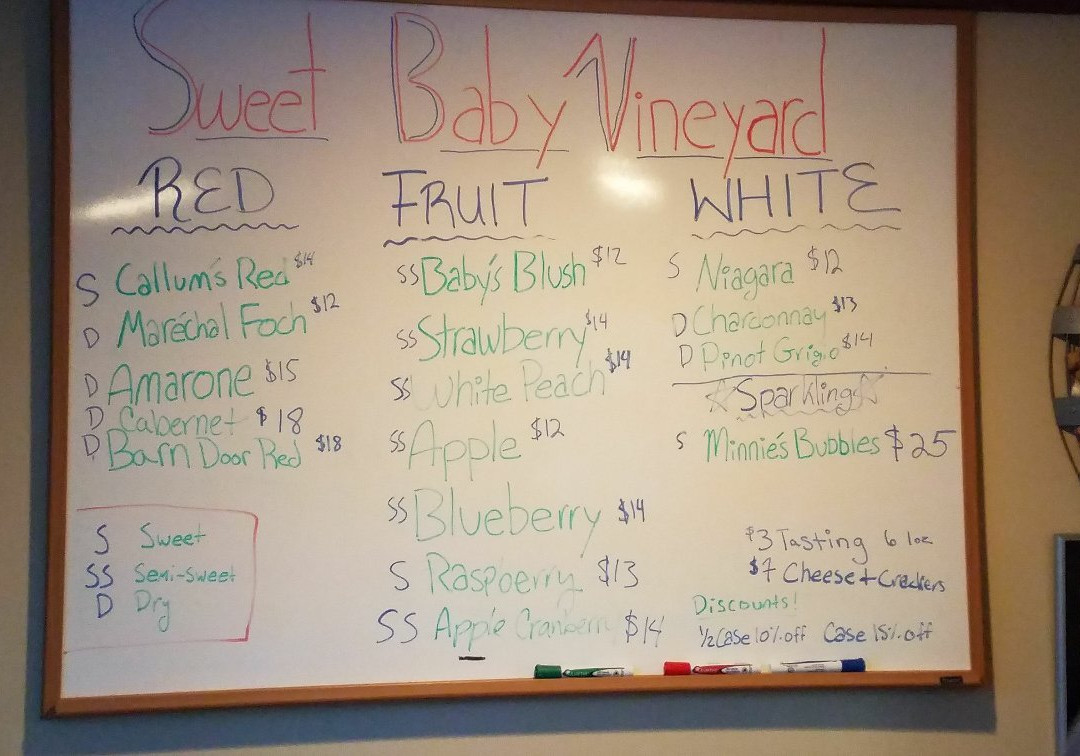 Sweet Baby Vineyard
RED
S Callum's Red $14
D Maréchal Foch $12
D Amarone $15
D Cabernet $18
D Barn Door Red $18
S Sweet
SS Semi-Sweet
D Dry
FRUIT
SS Baby's Blush $12
SS Strawberry $14
SS White Peach $14
SS Apple $12
SS Blueberry $14
S Raspberry $13
SS Apple Cranberry $14
WHITE
S Niagara $12
D Chardonnay $13
D Pinot Grigio $14
Sparkling
S Minnie's Bubbles $25
$3 Tasting 6 1oz
$7 Cheese + Crackers
Discounts!
1/2 Case 10% off Case 15% off